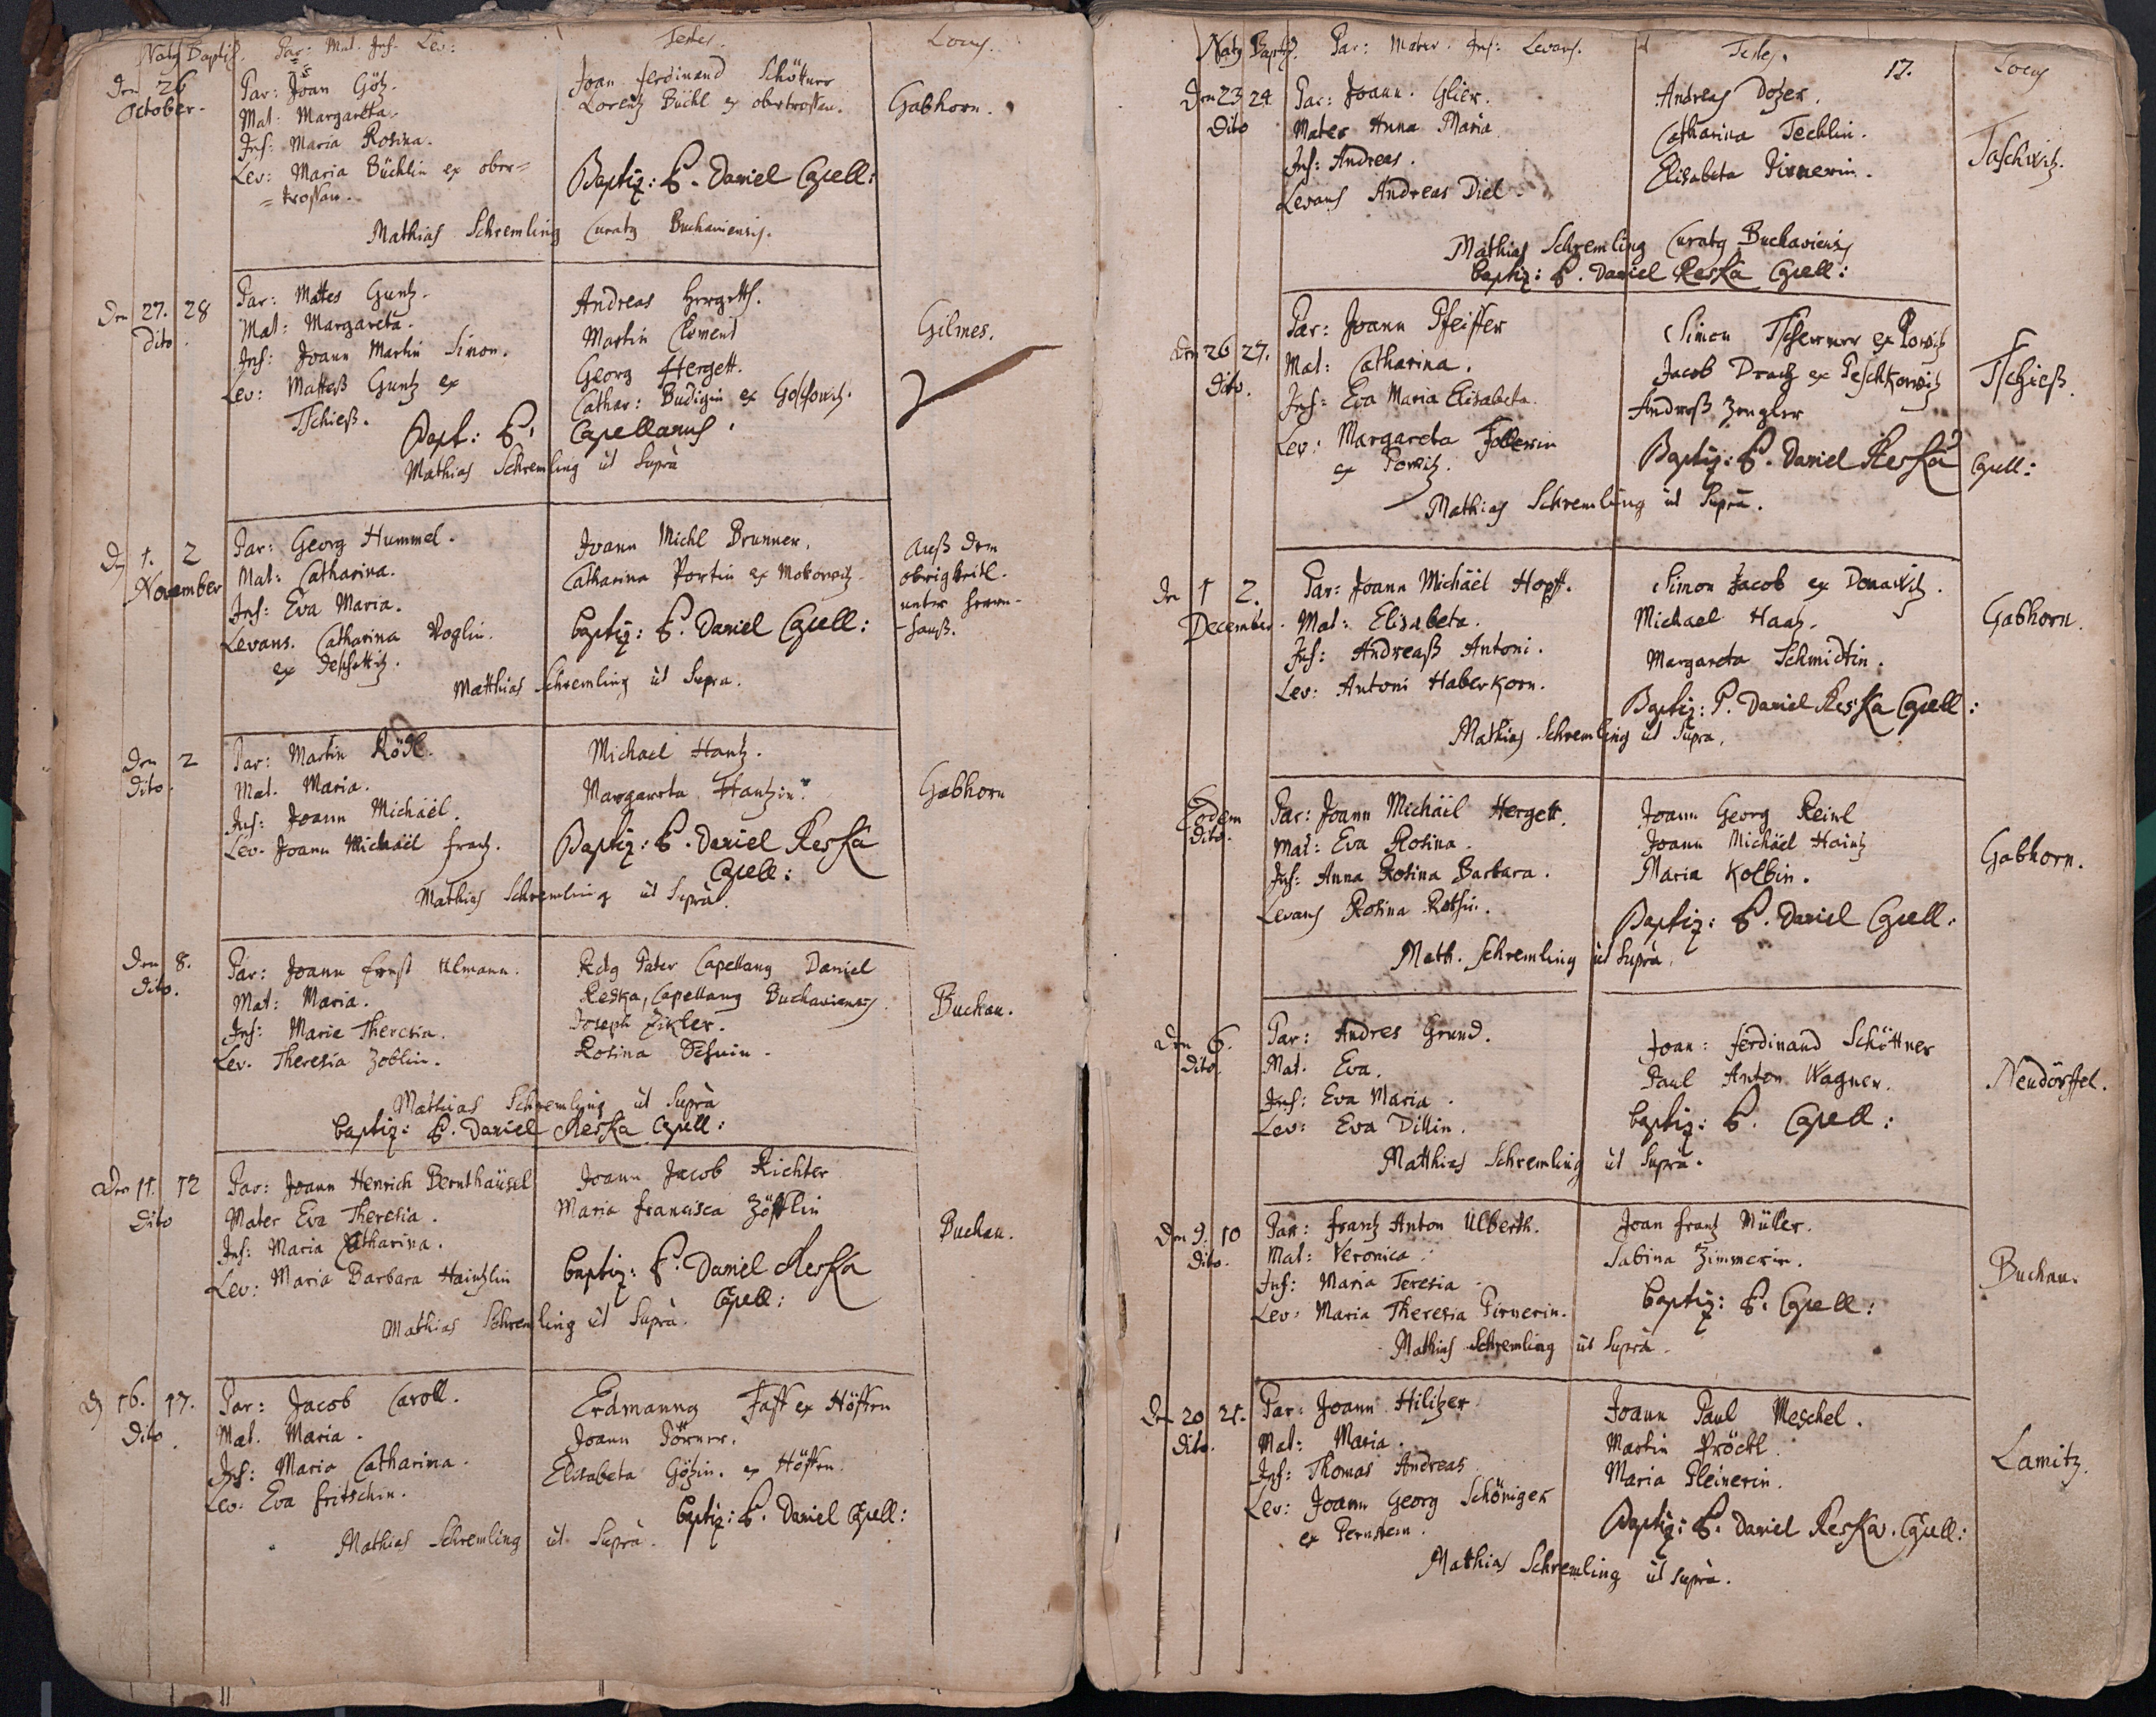 Natus Baptiz. Par: Mat. Inf. Lev:
Testes.
Locus.
Den 26
October.
Par: Joan Götz.
Mat. Margareta.
Inf: Maria Rosina.
Lev: Maria Büchlin ex ober=
=trossau.
Joan ferdinand Schöttner
Lorentz Büchl ex obertrossau.
Baptiz: P. Daniel Capell:
Gabhorn.
Mathias Schremling Curatus Buchaviensis.
Den 27. 28
Dito.
Par: Mattes Guntz.
Mat: Margareta.
Inf: Joann Martin Simon.
Lev: Matteß Guntz ex
Tschieß.
Andreas Hergett.
Martin Clement
Georg Hergett.
Cathar: Budigin ex Goßowitz.
Bapt: P. Capellanus.
Gilmes.
Mathias Schremling ut Suprà
Den 1. 2
November
Par: Georg Hummel.
Mat: Catharina.
Inf: Eva Maria.
Levans. Catharina Voglin.
ex
Joann Michl Brunner.
Catharina Portin ex Mokowitz.
baptiz: P. Daniel Capell:
Auß dem
obrigkeitl.
unter herrn-
-hauß.
Matthias Schremling ut Supra.
Den 2
Dito.
Par: Martin Rödl.
Mat. Maria.
Inf: Joann Michäel.
Lev. Joann Michäel frantz.
Michael Hantz.
Margareta Hantzin.
Baptiz: P. Daniel Reska
Capell:
Gabhorn
Mathias Schremling ut Suprà.
Den 8.
Dito.
Par: Joann Ernst Ulmann.
Mat: Maria.
Inf: Maria Theresia.
Lev. Theresia Zoblin.
Rdus Pater Capellanus Daniel
Reska, Capellanus Buchaviensis.
Joseph Zikler.
Rosina
Buchau.
Mathias Schremling ut Suprà
baptiz: P. Daniel Reska Capell:
Den 11. 12
Dito
Par: Joann Henrich Bernthäusel
Mater Eva Theresia.
Inf: Maria Catharina.
Lev: Maria Barbara Haintzlin
Joann Jacob Richter
Maria francisca Zöfflin
baptiz: P. Daniel Reska
Capell:
Buchau.
Mathias Schremling ut Suprà.
D 16. 17.
Dito.
Par: Jacob Caroll.
Mat. Maria.
Inf: Maria Catharina.
Lev. Eva fritschin.
Erdmannus Faff ex Höffen
Joann Dörner.
Elisabeta Götzin. ex Höffen.
baptiz: P. Daniel Capell:
Mathias Schremling ut Suprà.
Natus Baptiz. Par: Mater: Inf: Levans.
Testes.
17.
Locus
Den 23 24
Dito
Par: Joann. Glier.
Mater Anna Maria
Inf: Andreas.
Levans Andreas Diel.
Andreas Dozer.
Catharina Techlin.
Elisabeta Pirnerin.
Taschwitz.
Mathias Schremling Curatus Buchaviensis
baptiz: P. Daniel Reska Capell:
Den 26 27.
Dito.
Par: Joann Pfeiffer
Mat: Catharina.
Inf: Eva Maria Elisabeta.
Lev: Margareta Follerin
ex Powitz.
Simon Tscherner ex Powitz
Jacob Dratz ex Peschkowitz
Andreß Zengler
Baptiz: P. Daniel Reska Capell:
Tschieß.
Mathias Schremling ut Supra.
Den 1 2.
December.
Par: Joann Michäel Hopff.
Mat: Elisabeta.
Inf: Andreaß Antoni.
Lev: Antoni Haberkorn.
Simon Jacob ex Donawitz.
Michael Haatz.
Margareta Schmidtin.
Baptiz: P. Daniel Reska Capell:
Gabhorn.
Mathias Schremling ut Supra.
Eodem
Dito.
Par: Joann Michäel Hergett.
Mat: Eva Rosina.
Inf: Anna Rosina Barbara.
Levans Rosina
Joann Georg Reinl
Joann Michäel Haintz
Maria Kolbin.
Baptiz: P. Daniel Capell:
Gabhorn.
Math. Schremling ut Suprà.
Den 6.
Dito.
Par: Andres Grund.
Mat. Eva.
Inf: Eva Maria.
Lev: Eva Dillin.
Joan: ferdinand Schöttner
Paul Anton Wagner.
baptiz: P. Capell:
Neudörffel.
Matthias Schremling ut Supra.
Den 9. 10
Dito.
Par: frantz Anton Ulberth.
Mat: Veronica.
Inf: Maria Teresia
Lev: Maria Theresia Pirnerin.
Joan frantz Müller.
Sabina Zimmerin.
baptiz: P. Capell:
Buchau.
Mathias Schremling ut Suprà.
Den 20 21.
Dito.
Par: Joann Hilitzer
Mat: Maria.
Inf: Thomas Andreas
Lev: Joann Georg Schöniger
ex Pernstein.
Joann Paul Meschel.
Martin Pröckl.
Maria Pleinerin.
Baptiz: P. Daniel Reska. Capell:
Lamitz.
Matthias Schremling ut suprà.